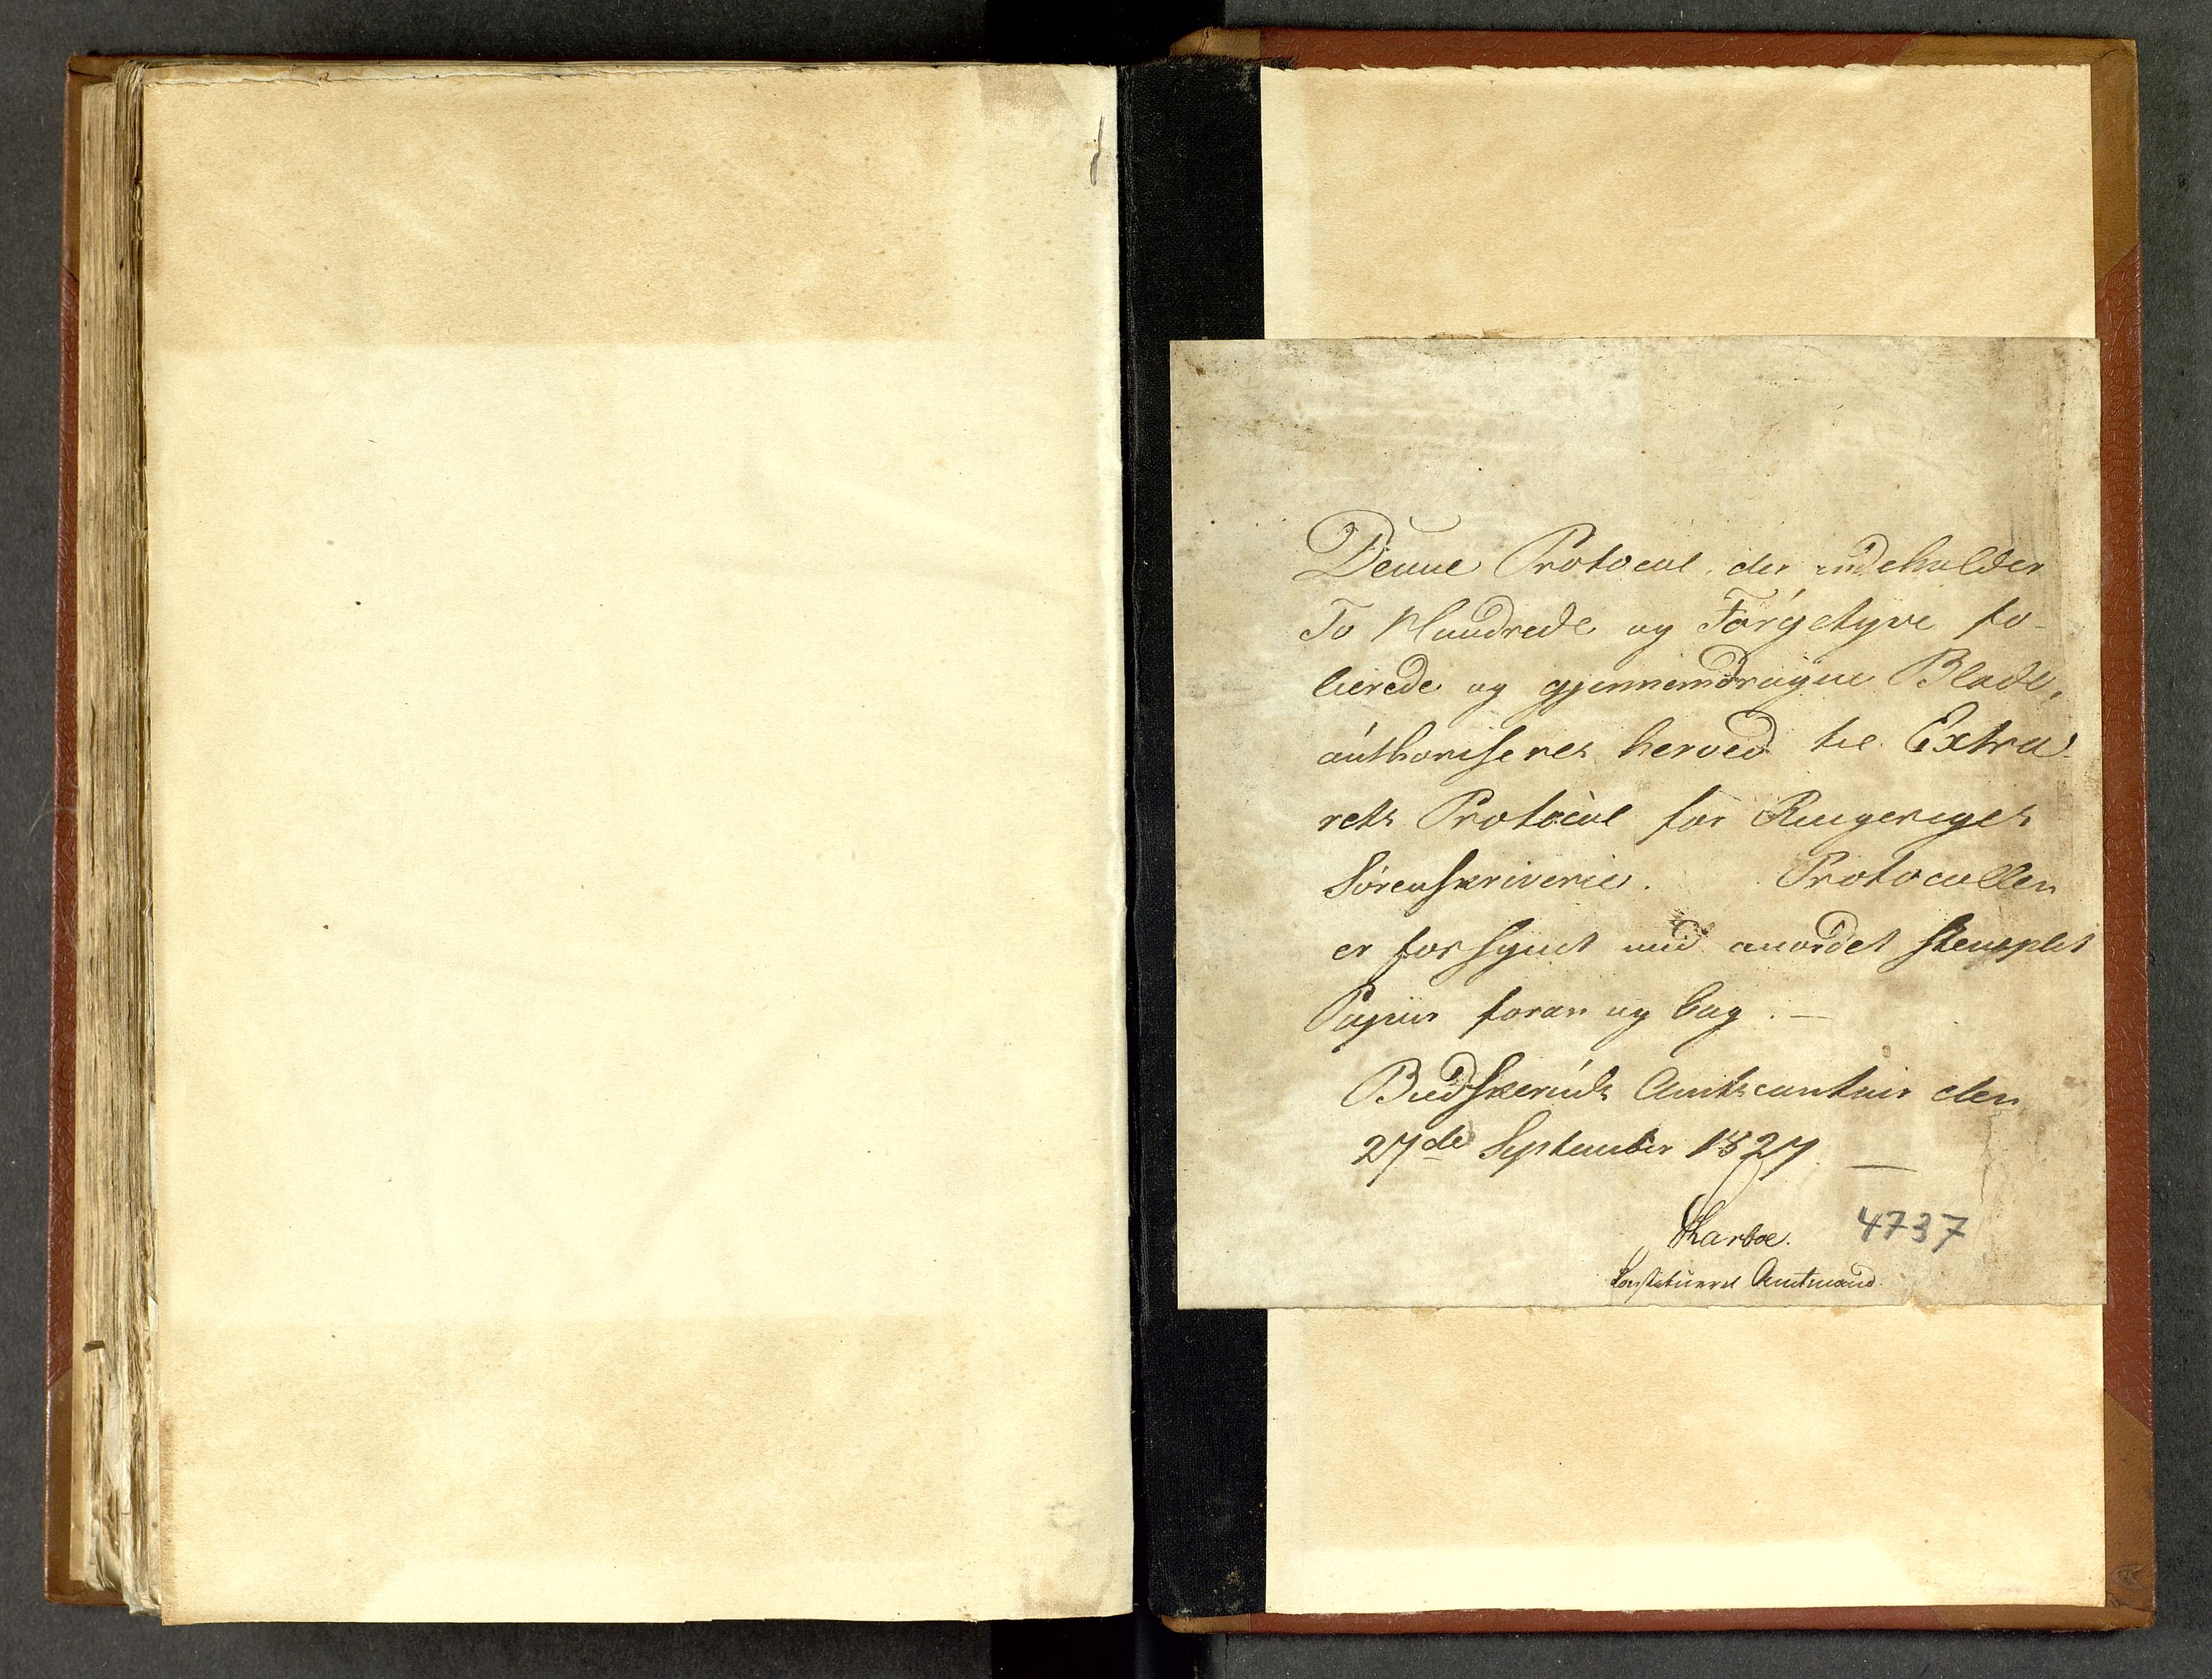 Denne Protocol, der indeholder
To Hundrede og Førgetyve fo-
lierede og gjennemdragne Blade,
authoriseres herved til Extra-
rets Protocol for Ringeriges
Sørenskriverie. Protocollen
er forsynet med anordet stemplet
Papiir foran og bag. —
Budskeruds Amtscontoir den
27de September 1827. —
Skarboe. 4737
Constitueret Amtmand.